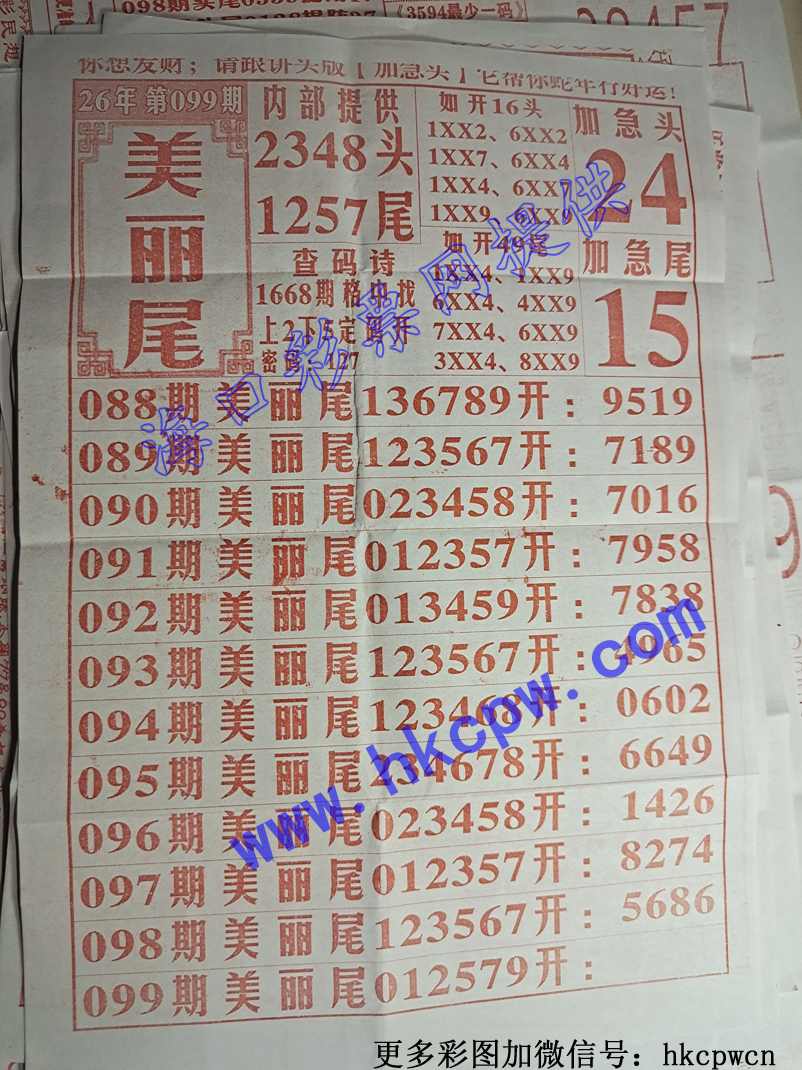 098期
《3594最少一码》
你想发财；请跟讲头版【加急头】它帮你蛇年行好运！
26年 第099期
美丽尾
内部提供
2348头
1257尾
查码诗
1668期格中找
上2下5定码开
密码
127
如开16头
1XX2、6XX2
1XX7、6XX4
1XX4、6XX7
1XX9、6XX9
如开49尾
1XX4、1XX9
6XX4、4XX9
7XX4、6XX9
3XX4、8XX9
加急头
24
加急尾
15
088期美丽尾136789开：9519
089期美丽尾123567开：7189
090期美丽尾023458开：7016
091期美丽尾012357开：7958
092期美丽尾013459开：7838
093期美丽尾123567开：4965
094期美丽尾123468开：0602
095期美丽尾234678开：6649
096期美丽尾023458开：1426
097期美丽尾012357开：8274
098期美丽尾123567开：5686
099期美丽尾012579开：
海口彩票网提供
www.hkcpw.com
更多彩图加微信号：hkcpwcn